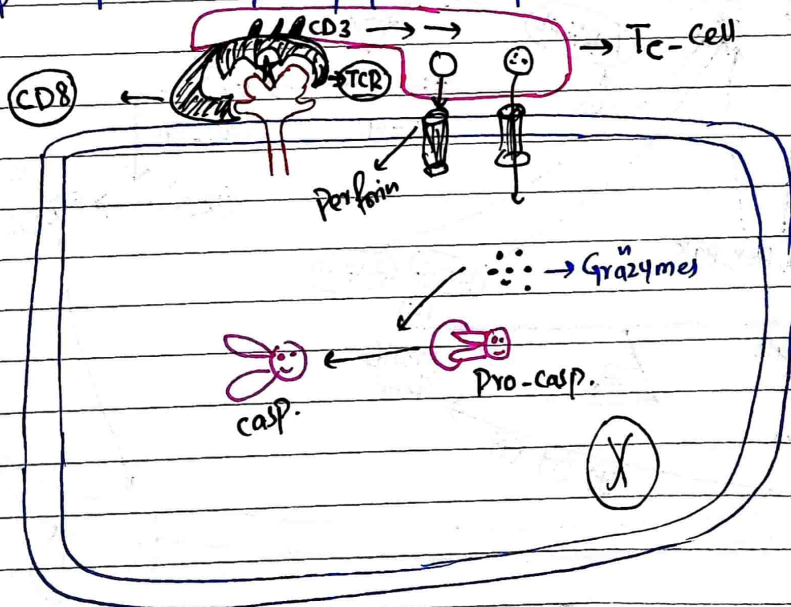 CD3 → → → Tc-Cell
CD8 ← → TCR
Perforin
→ Granzymes
Casp. ← Pro-Casp.
X